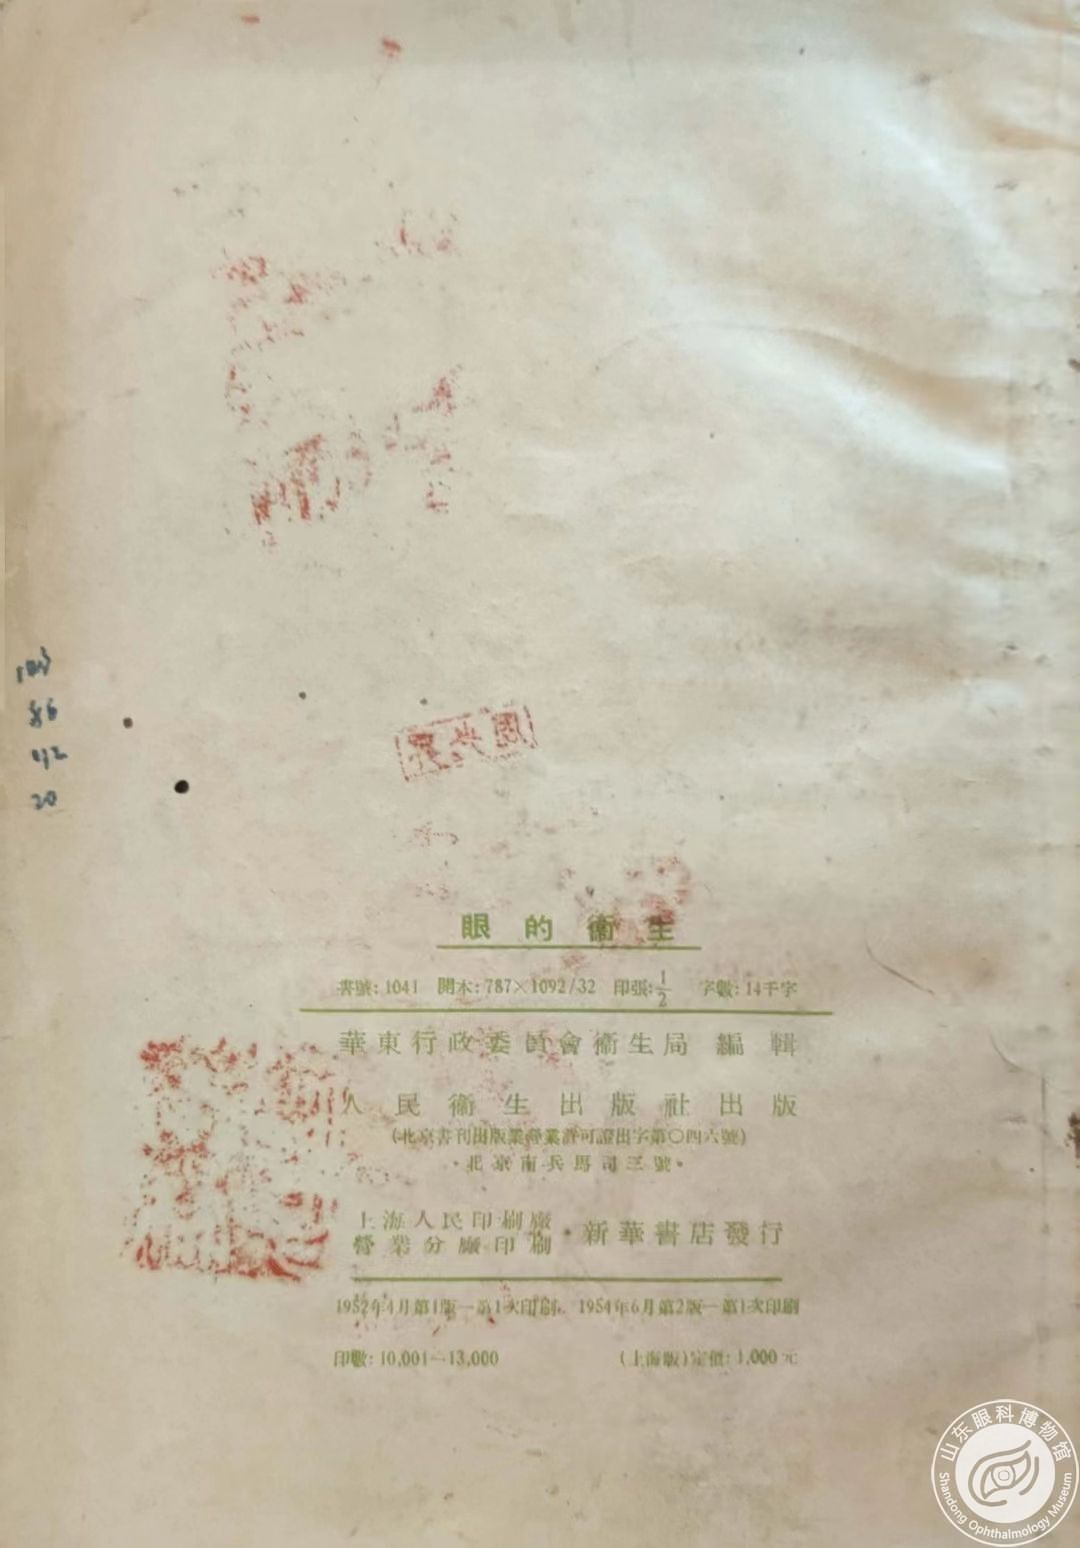 86
92
20
眼的衞生
書號：1041 開本：787×1092/32 印張：1/2 字數：14千字
華東行政委員會衞生局 編輯
人民衞生出版社出版
（北京書刊出版業營業許可證出字第〇四六號）
·北京南兵馬司三號·
上海人民印刷廠
營業分廠印刷
·新華書店發行
1952年4月第1版—第1次印刷 1954年6月第2版—第1次印刷
印數：10,001—13,000 （上海版）定價：1,000元
山东眼科博物馆
Shandong Ophthalmology Museum